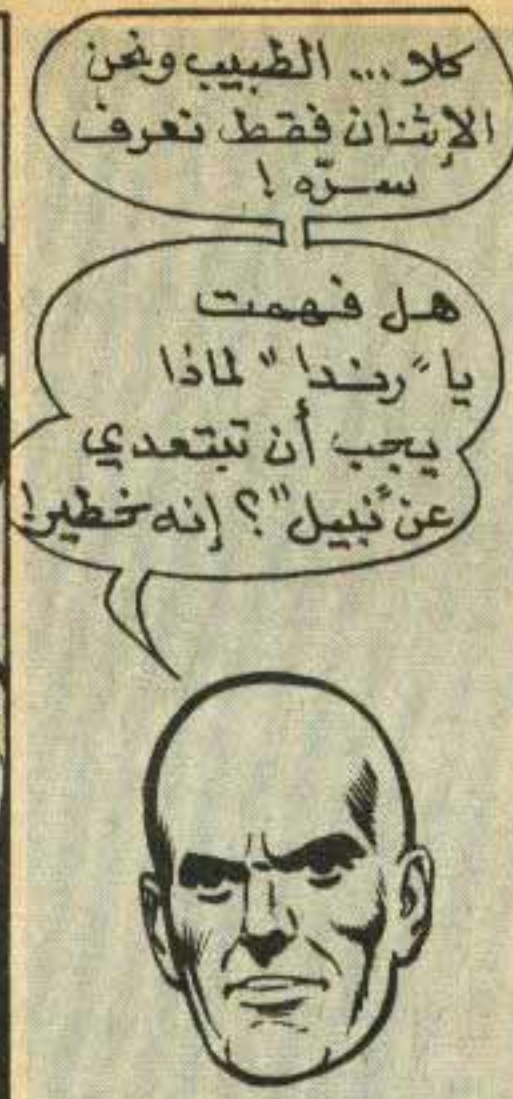 كلا... الطبيب ونحن
الإثنان فقط نعرف
سرّه !
هل فهمت
يا "رندا" لماذا
يجب أن تبتعدي
عن "نبيل"؟ إنه خطير!